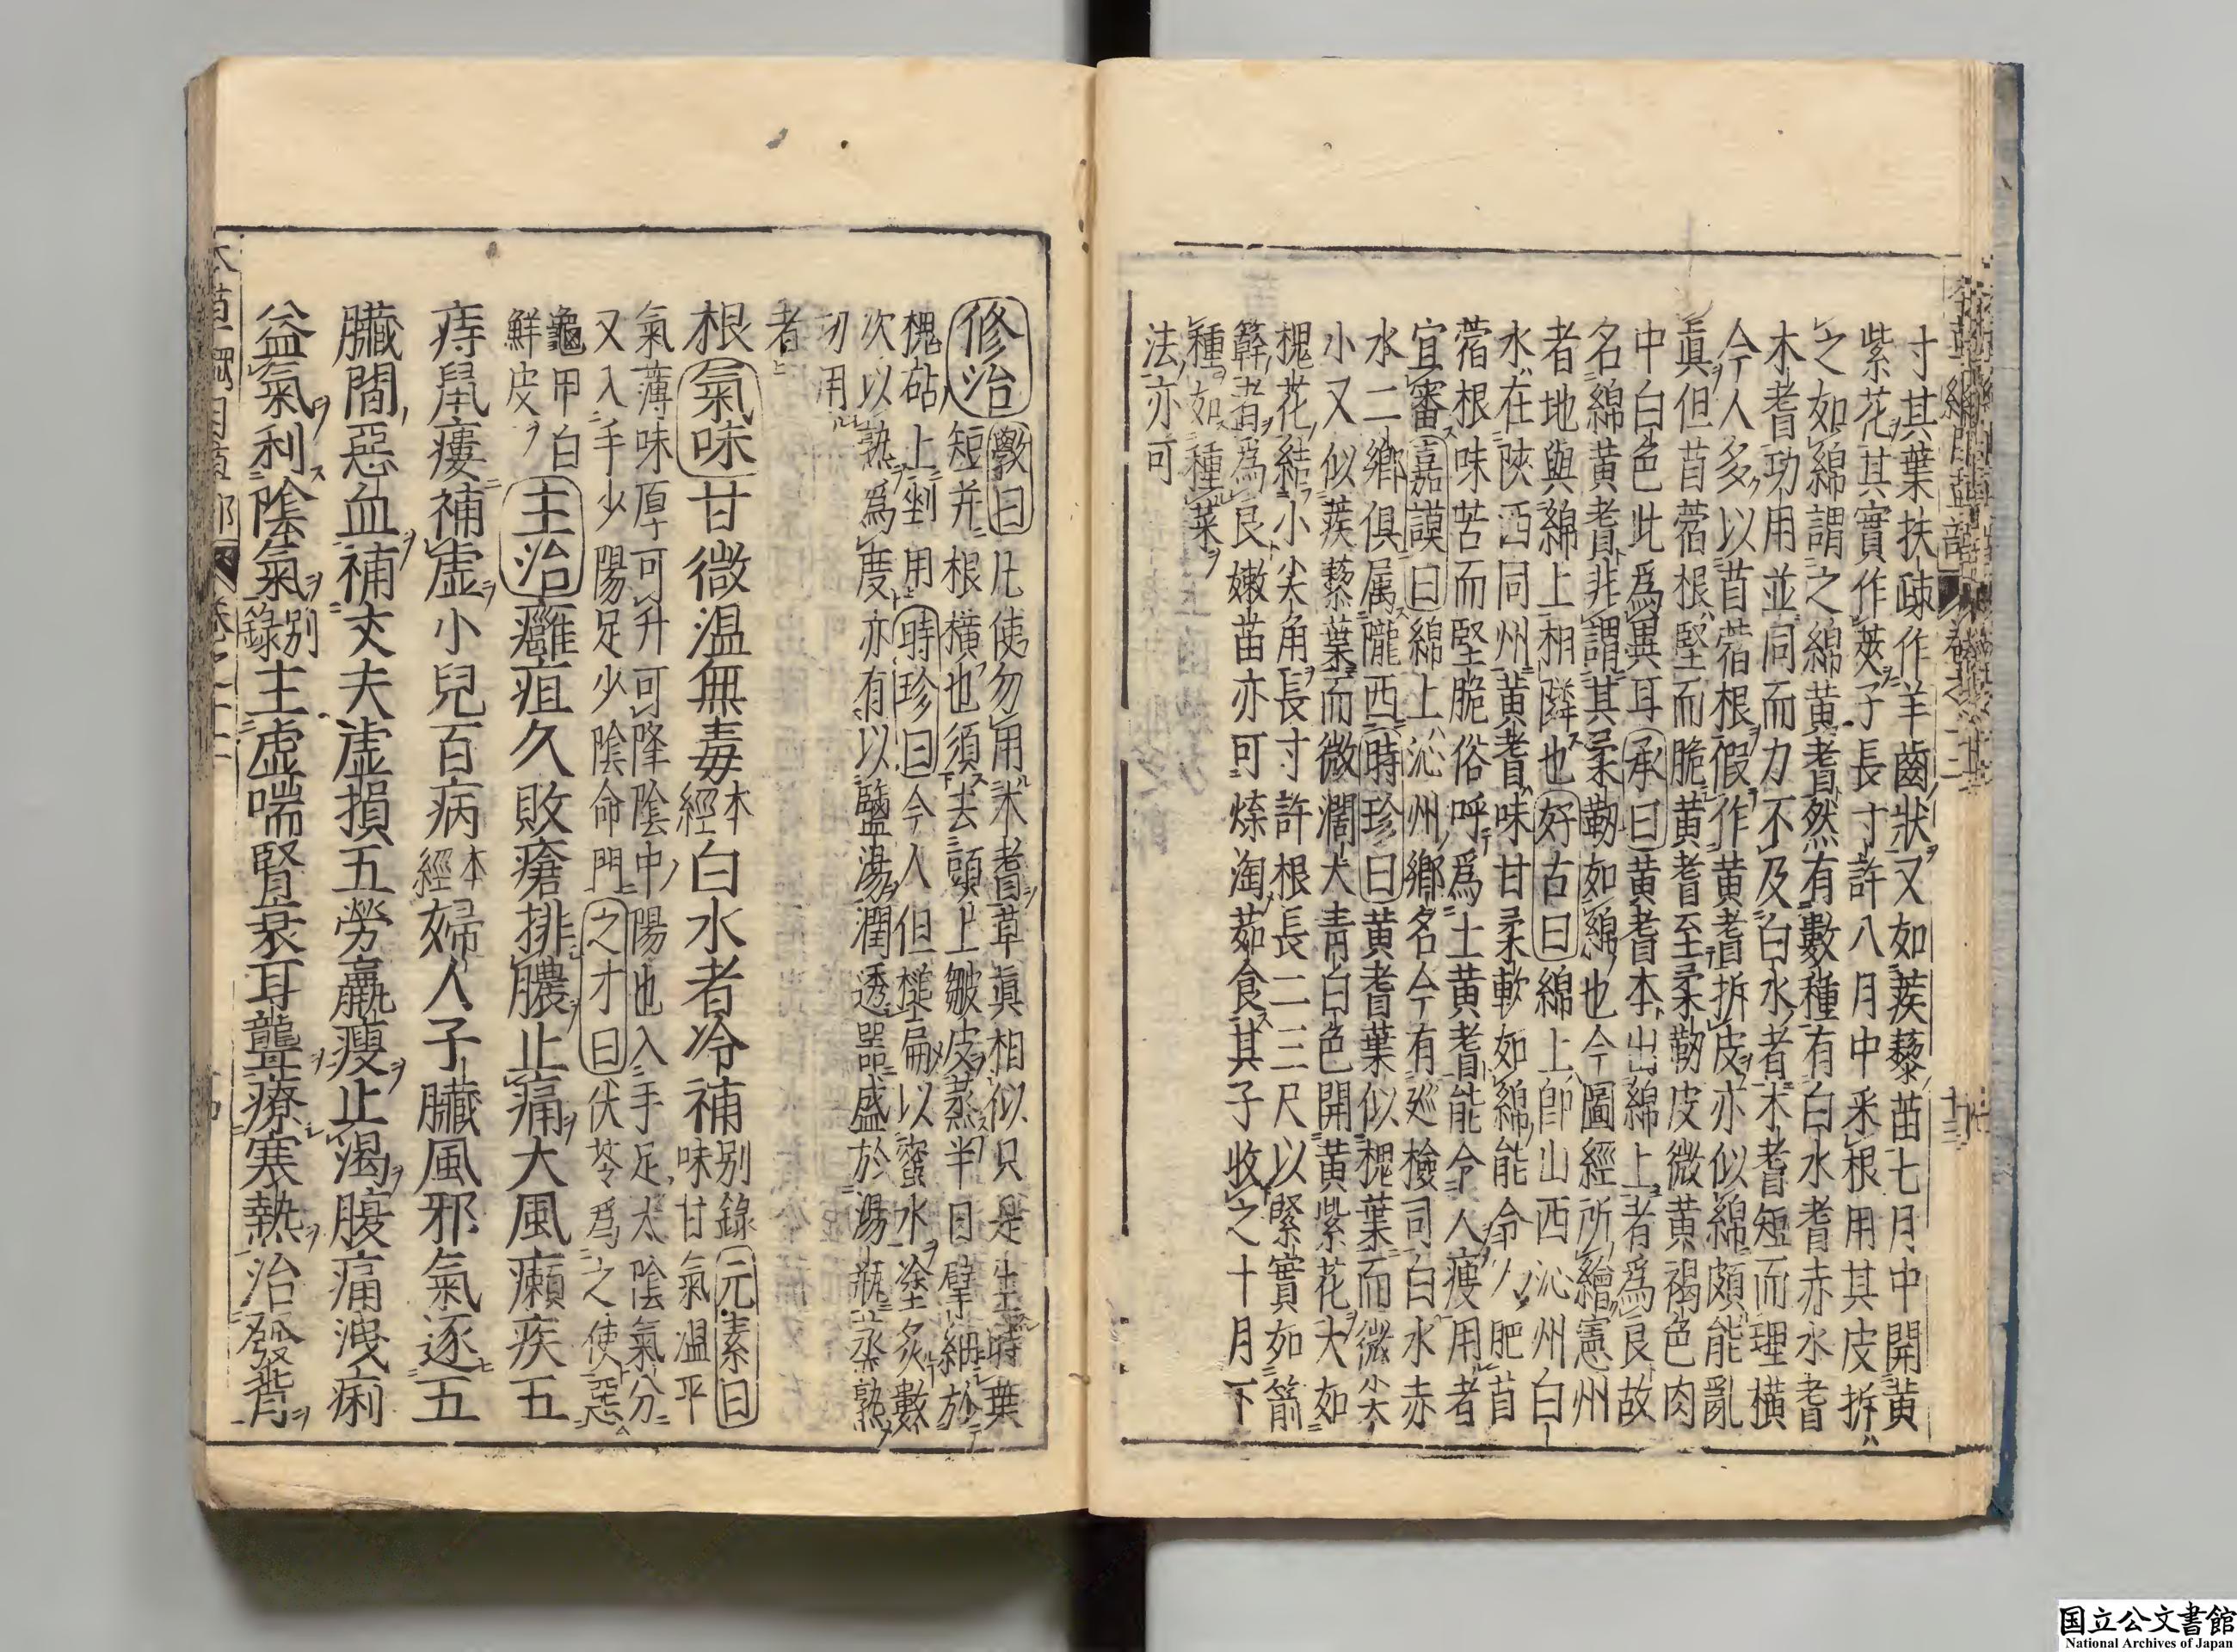 寸其葉扶疎作羊齒狀又如蒺藜苗七月中開黄
紫花其實作莢子長寸許八月中采根用其皮拆
之如綿謂之綿黄耆然有數種有白水耆赤水耆
木耆功用並同而力不及白水者木耆短而理橫
今人多以苜蓿根假作黄耆拆皮亦似綿頗能亂
眞但苜蓿根堅而脆黄耆至柔靭皮微黄褐色肉
中白色此爲異耳承曰黄耆本出綿上者爲良故
名綿黄耆非謂其柔靭如綿也今圖經所繪憲州
者地與綿上相隣也好古曰綿上即山西沁州白
水在陝西同州黄耆味甘柔軟如綿能令人肥苜
蓿根味苦而堅脆俗呼爲土黄耆能令人瘦用者
宜審嘉謨曰綿上沁州鄉名今有巡檢司白水赤
水二鄉俱属隴西時珍曰黄耆葉似槐葉而微尖
小又似蒺藜葉而微濶大青白色開黄紫花大如
槐花結小尖角長寸許根長二三尺以緊實如箭
簳者爲良嫩苗亦可煠淘茹食其子收之十月下
種如種菜
法亦可
修治 斅曰凡使勿用木耆草眞相似只是生時葉
短并根橫也須去頭上皺皮蒸半日擘細於
槐砧上剉用時珍曰今人但搥扁以蜜水塗炙數
次以熟爲度亦有以鹽湯潤透器盛於湯瓶蒸熟
切用
者
根氣味甘微温無毒本經白水者冷補别錄元素曰味甘氣温平
氣薄味厚可升可降陰中陽也入手足太陰氣分
又入手少陽足少陰命門之才曰伏苓爲之使惡
龜甲白
鮮皮
主治癰疽久敗瘡排膿止痛大風癩疾五
痔鼠瘻補虛小兒百病本經婦人子臟風邪氣逐五
臟間惡血補丈夫虛損五勞羸瘦止渴腹痛洩痢
益氣利陰氣别錄主虛喘腎衰耳聾療寒熱治發背
国立公文書館
National Archives of Japan